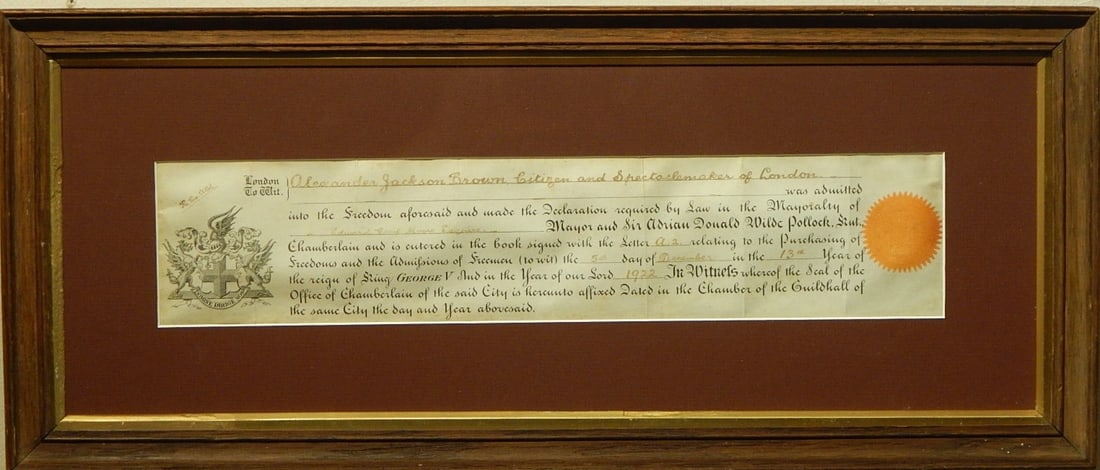 London
To Wit.
Alexander Jackson Brown Citizen and Spectaclemaker of London
was admitted
into the Freedom aforesaid and made the Declaration required by Law in the Mayoralty of
Edward Cecil Moore Esquire Mayor and Sir Adrian Donald Wilde Pollock, Knt.,
Chamberlain and is entered in the book signed with the Letter A.2. relating to the Purchasing of
Freedoms and the Admissions of Freemen (to wit) the 5th day of December in the 13th Year of
the reign of King GEORGE V And in the Year of our Lord 1922 In Witness whereof the Seal of the
Office of Chamberlain of the said City is hereunto affixed Dated in the Chamber of the Guildhall of
the same City the day and Year abovesaid.
DOMINE DIRIGE NOS